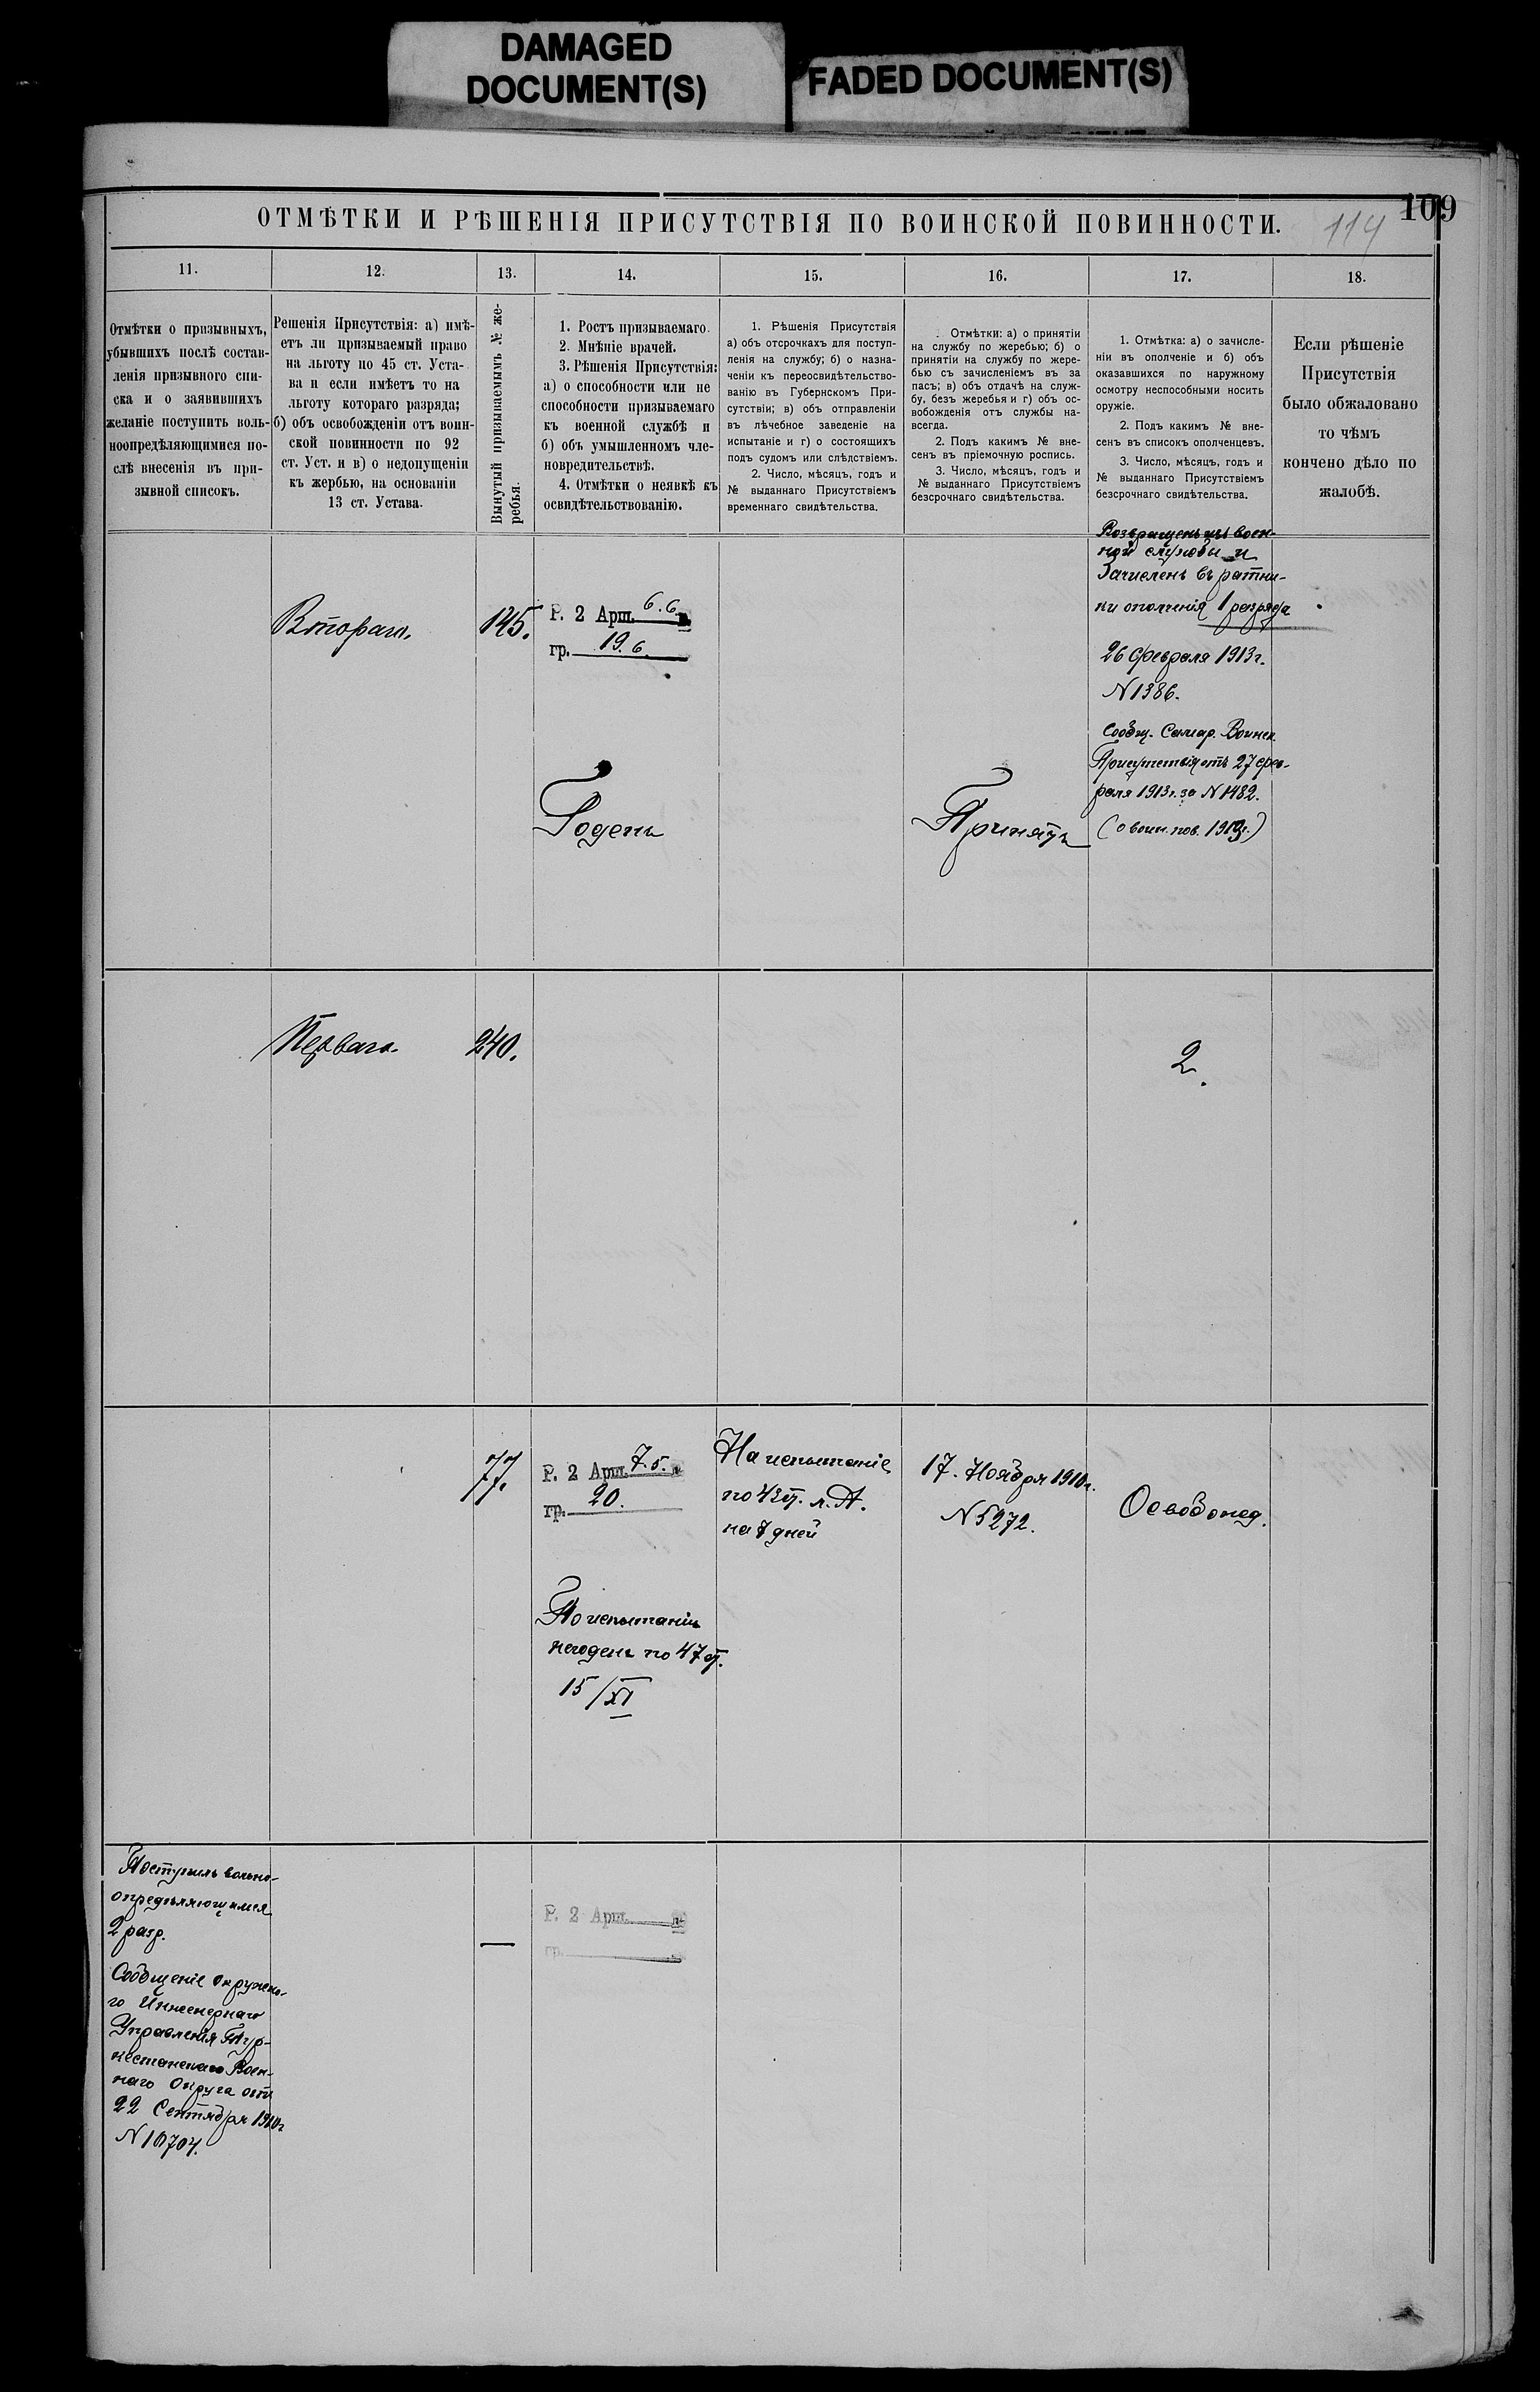 DAMAGED
DOCUMENT(S)
FADED DOCUMENT(S)
109
ОТМѢТКИ И РѢШЕНІЯ ПРИСУТСТВІЯ ПО ВОИНСКОЙ ПОВИННОСТИ.
114
11.
12.
13.
14.
15.
16.
17.
18.
Отмѣтки о призывныхъ,
убывшихъ послѣ состав-
ленія призывного спи-
ска и о заявившихъ
желаніе поступить воль-
ноопредѣляющимися по-
слѣ внесенія въ при-
зывной списокъ.
Решенія Присутствія: а) имѣ-
етъ ли призываемый право
на льготу по 45 ст. Уста-
ва и если имѣетъ то на
льготу котораго разряда;
б) объ освобожденіи отъ воин-
ской повинности по 92
ст. Уст. и в) о недопущеніи
къ жербью, на основаніи
13 ст. Устава.
Вынутый призываемымъ № же-
ребья.
1. Ростъ призываемаго.
2. Мнѣніе врачей.
3. Рѣшенія Присутствія:
а) о способности или не
способности призываемаго
къ военной службѣ и
б) объ умышленномъ чле-
новредительствѣ.
4. Отмѣтки о неявкѣ къ
освидѣтельствованію.
1. Рѣшенія Присутствія
а) объ отсрочкахъ для поступ-
ленія на службу; б) о назна-
ченіи къ переосвидѣтельство-
ванію въ Губернскомъ При-
сутствіи; в) объ отправленіи
въ лѣчебное заведеніе на
испытаніе и г) о состоящихъ
подъ судомъ или слѣдствіемъ.
2. Число, мѣсяцъ, годъ и
№ выданнаго Присутствіемъ
временнаго свидѣтельства.
Отмѣтки: а) о принятіи
на службу по жеребью; б) о
принятіи на службу по жере-
бью съ зачисленіемъ въ за
пасъ; в) объ отдачѣ на служ-
бу, безъ жеребья и г) объ ос-
вобожденія отъ службы на-
всегда.
2. Подъ какимъ № вне-
сенъ въ пріемочную роспись.
3. Число, мѣсяцъ, годъ и
№ выданнаго Присутствіемъ
безсрочнаго свидѣтельства.
1. Отмѣтка: а) о зачисле-
ніи въ ополченіе и б) объ
оказавшихся по наружному
осмотру неспособными носить
оружіе.
2. Подъ какимъ № вне-
сенъ въ списокъ ополченцевъ.
3. Число, мѣсяцъ, годъ и
№ выданнаго Присутствіемъ
безсрочнаго свидѣтельства.
Если рѣшеніе
Присутствія
было обжаловано
то чѣмъ
кончено дѣло по
жалобѣ.
Втораго.
145.
Р. 2 Арш. 6.6 в.
гр. 19.6.
Годенъ
Принятъ
Возвращенъ изъ воен-
ной службы и
Зачисленъ въ ратни-
ки ополченія 1 разряда
26 февраля 1913г.
N 1386.
Сообщ. Самар. Воинск.
Присутствія отъ 27 фев-
раля 1913г. за N 1482.
(о воин. пов. 1913г.)
Перваго.
240.
2.
77.
Р. 2 Арш. 7.5. в
гр. 20.
По испытаніи
негоденъ по 47 ст.
15/XI
На испытаніе
по ст. л. А.
на 7 дней
17. Ноября 1910г.
N 5272.
Освобожд.
Поступилъ вольно-
опредѣляющимся
2 разр.
Сообщеніе Окружно-
го Инженернаго
Управленія Тур-
кестанскаго Воен-
наго Округа отъ
22 Сентября 1910г
N 10704.
—
Р. 2 Арш. в
гр.